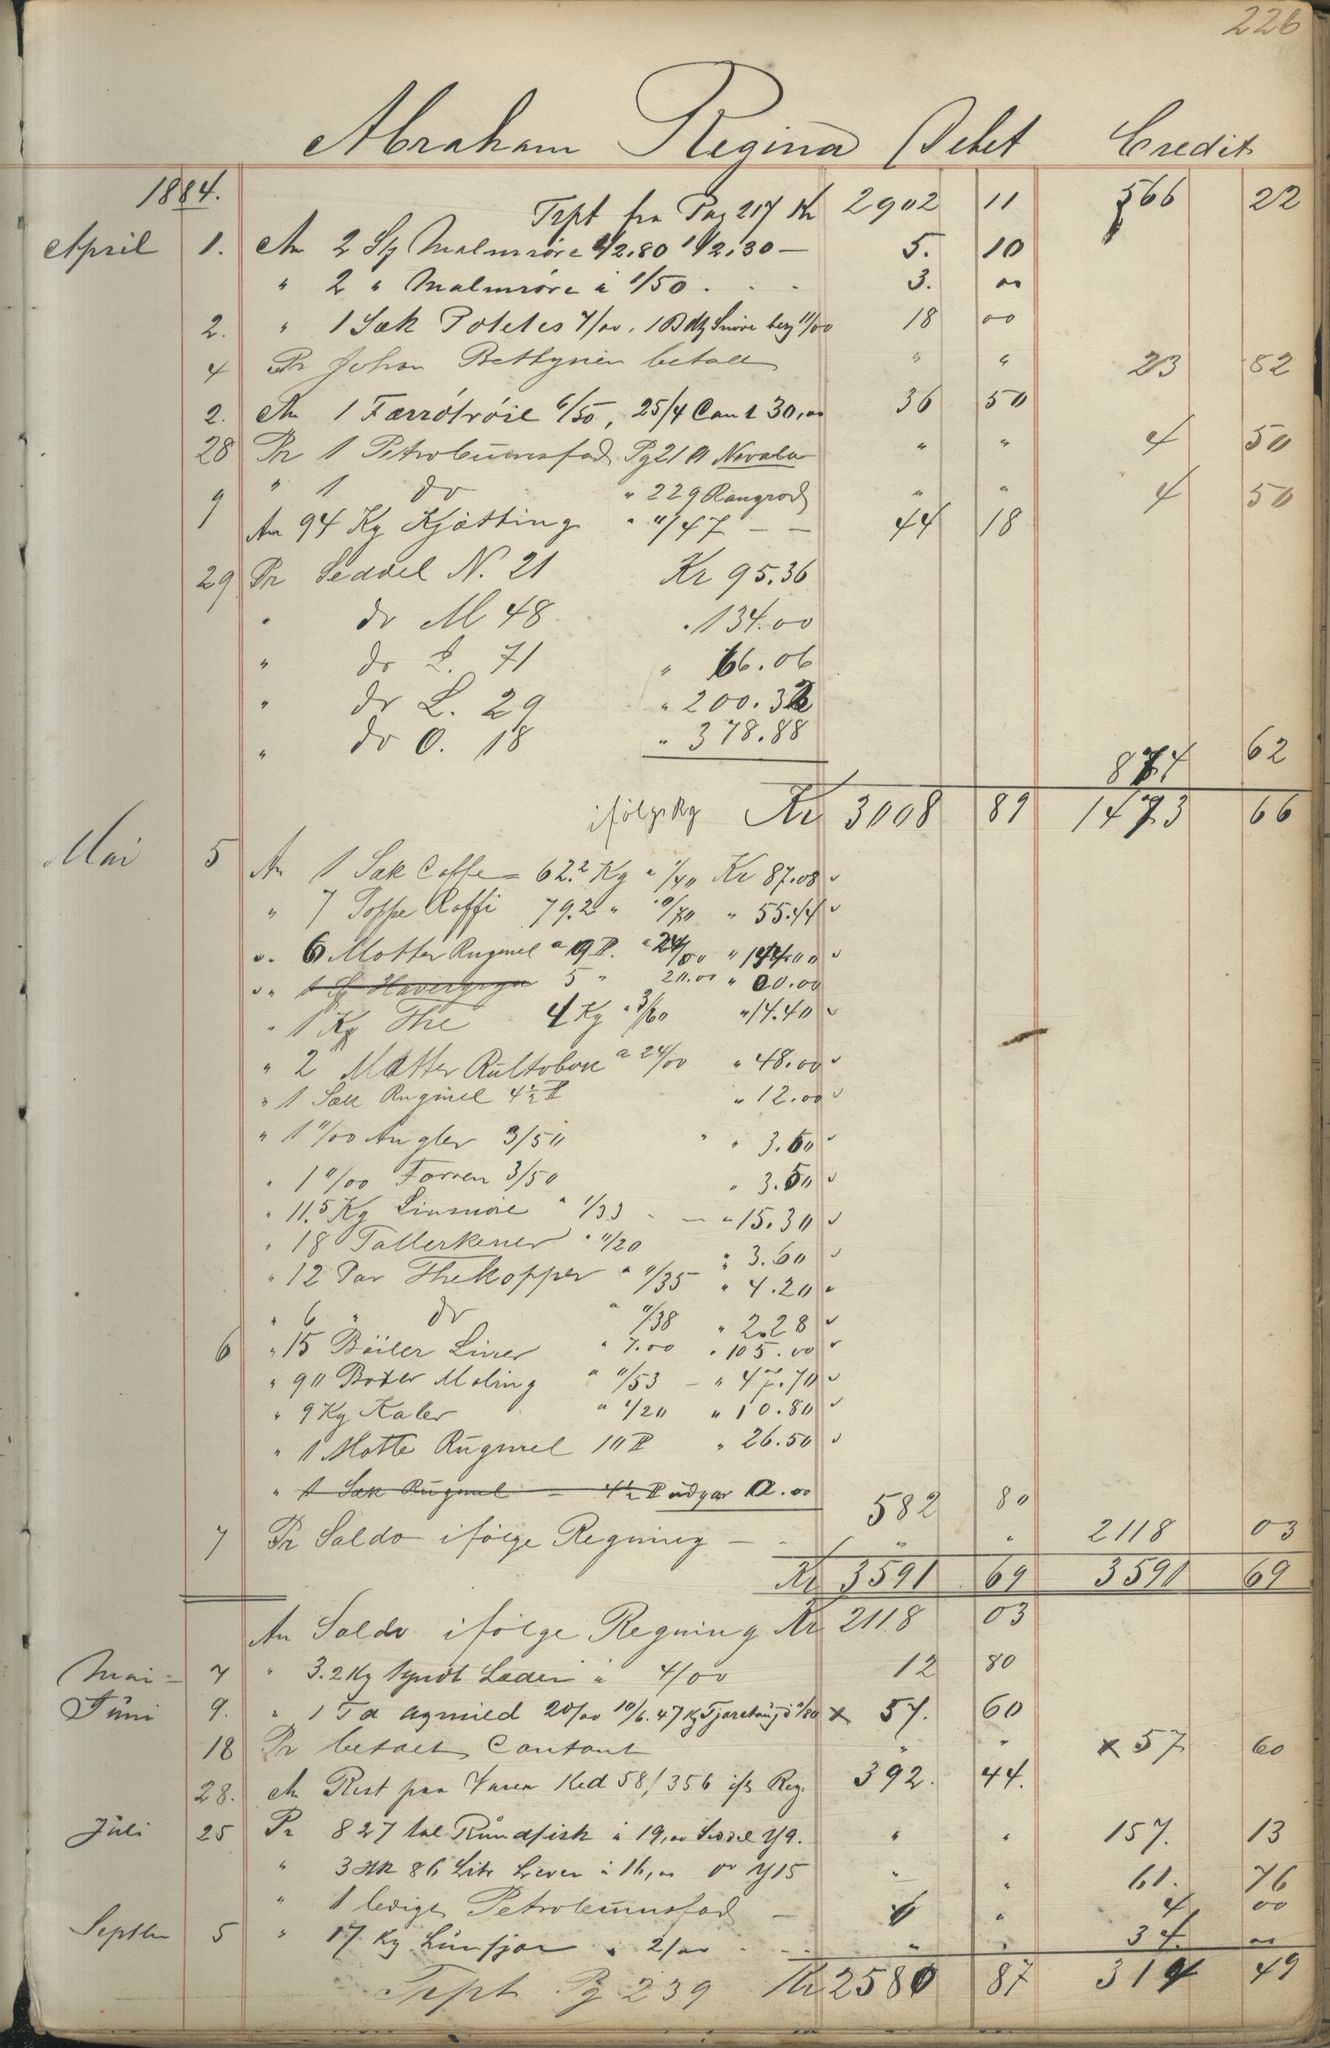 226
Abraham Regina Debet Credit
1884. Trpt fra Pag 217 Kr 2902 11 566 22
April 1. An 2 Malmsøre 2.80 2.30 — 5. 10
" 2 " Malmsøre à 1/50 . . . 3. 00
2. " 1 Sæk Potetes 7/00, 1 Snøre 11/00 18 00
4 Pr Johan betalt " " 23 82
2. An 1 6/50, 25/4 Cant 30,00 36 50
28 Pr 1 Petroleumsfad Pg 210 Nevala " " 4 50
" 1 do " 229 " " 4 50
9 An 94 Kg Kjøtting " "/47 — — 44 18
29 Pr Seddel N. 21 Kr 95.36
" do M 48 " 134.00
" do L. 71 " 66.06
" do L. 29 " 200.32
" do O. 18 " 378.88
874 62
ifølge Rg Kr 3008 89 1473 66
Mai 5 An 1 Sæk Caffe = 62.2 Kg " 1/40 Kr 87.08
" 7 Toppe Raffi 79.2 " "/70 " 55.44
" 6 Motter Rugmel a 9 " 24/00 " 144.00
" 1 Havregryn 5 " 20.00 " 00.00
" 1 Kg The 4 Kg " 3/60 " 14.40
" 2 Matter a 24/00 " 48.00
" 1 Sæk Rugmel 4½ " 12.00
" 1 "/00 Angler 3/50 " " 3.50
" 1 "/00 3/50 " 3.50
" 11.5 Kg Linsnøre " 1/33 - — " 15.30
" 18 Tallerkener " "/20 " 3.60
" 12 Par Thekopper " "/35 " 4.20
" 6 " do " "/38 " 2.28
6 " 15 Böiler Liner " 7.00 " 105.00
" 90 Boxer Maling " "/53 — " 47.70
" 9 Kg Kabler " 1/20 " 10.80
" 1 Motte Rugmel 10 " 26.50
" 1 Sæk Rugmel — 4½ udgar 0.00
582 80
7 Pr Saldo ifølge Regning — " " 2118 03
Kr 3591 69 3591 69
An Saldo ifølge Regning Kr 2118 03
Mai = 7 " 3.2 Kg tyndt Læder à 4/00 12 80
Juni 9. " 1 Td 20/00 10/6. 47 Kg Tjæretoug à "/80 x 57. 60
18 Pr betalt Contant " " x 57 60
28. An Rest paa Varer Ked 58/356 ifs Reg. 392. 44.
Juli 25 Pr 827 tal Rundfisk à 19,00 Seddel Y9. " " 157. 13
" 3 Hk 86 Litr Lever à 16,00 do Y15 " " 61. 76
" 1 ledigt Petroleumsfad — " " 4 00
Septbr 5 " 17 Kg à 2/00 . . . " " 34. 00
Trpt Pg 239 Kr 2580 87 314 49